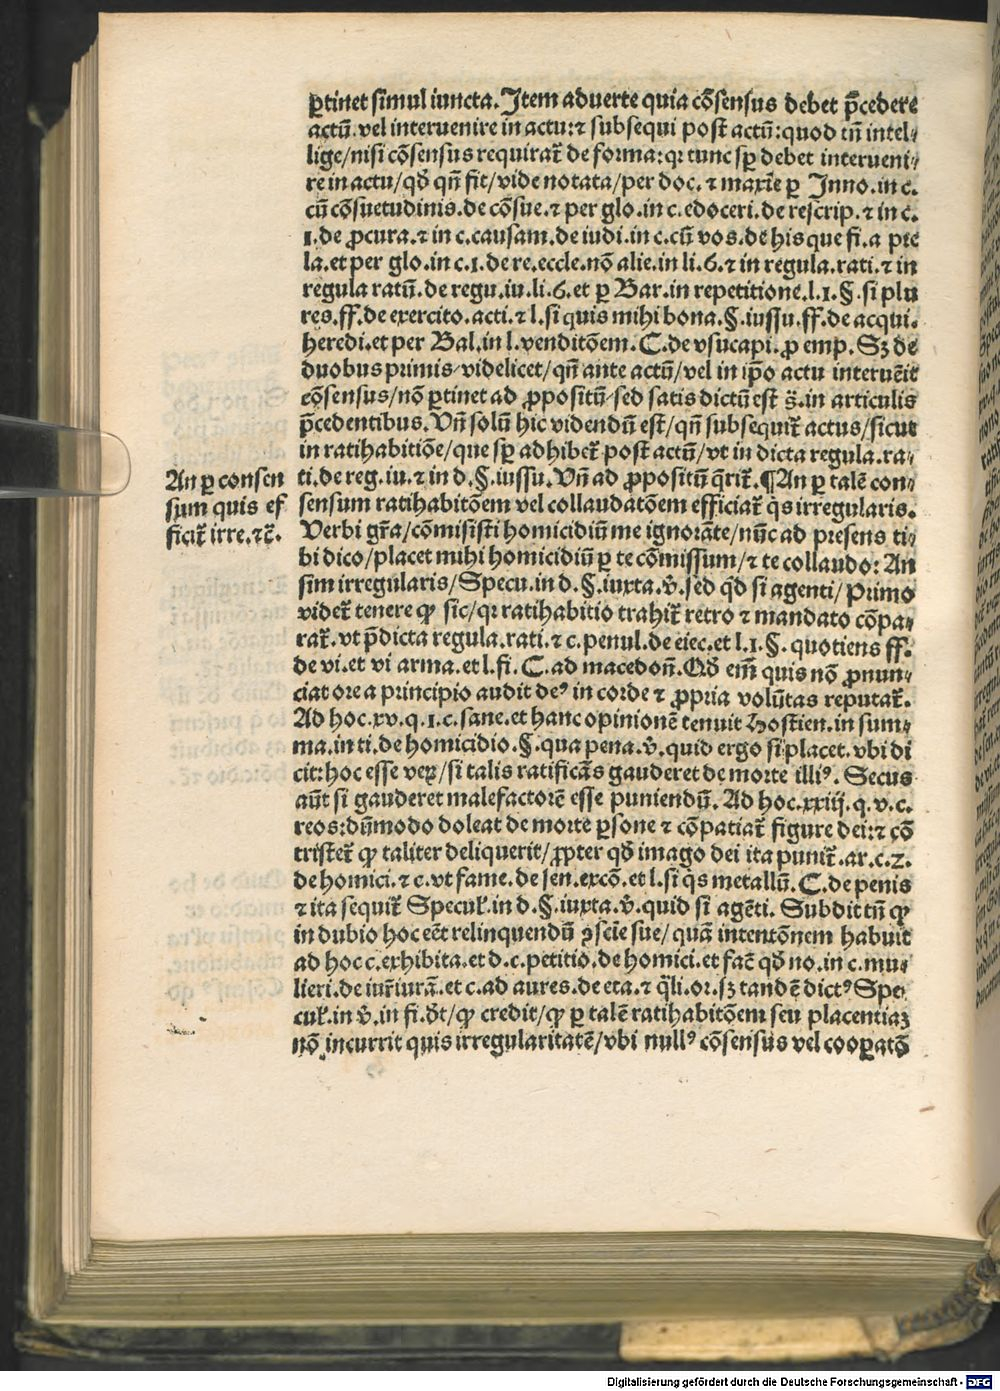 ꝑtinet simul iuncta. Item aduerte quia cõsensus debet p̃cedere
actũ. vel interuenire in actu: ⁊ subsequi post̃ actũ: quod tñ intel⸗
lige/ nisi cõsensus requirat̃ de forma: qꝛ tunc sp̱ debet interueni⸗
re in actu/ qđ qñ fit/ vide notata/ per doc. ⁊ maxĩe ꝑ Inno. in c.
cũ cõsuetudinis. de cõsue. ⁊ per glo. in c. edoceri. de rescrip. ⁊ in c.
1. de ꝓcura. ⁊ in c. causam. de iudi. in c. cũ vos. de his que fi. a pre
la. et per glo. in c. 1. de re. eccle. nõ alie. in li. 6. ⁊ in regula. rati. ⁊ in
regula ratũ. de regu. iu. li. 6. et ꝑ Bar. in repetitione. l. 1. §. si plu
res. ff. de exercito. acti. ⁊ l. si quis mihi bona. §. iussu. ff. de acqui.
heredi. et per Bal. in l. venditõem. C. de vsucapi. ꝓ emp. Sꝫ de
duobus primis videlicet/ qñ ante actũ/ vel in ip̃o actu interuẽit
cõsensus/ nõ ꝑtinet ad ꝓpositũ/ sed satis dictũ est s̃. in articulis
p̃cedentibus. Vñ solũ hic videndũ est/ qñ subsequit̃ actus/ sicut
in ratihabitiõe/ que sp̱ adhibet̃ post actũ/ vt in dicta regula. ra⸗
ti. de reg. iu. ⁊ in d. §. iussu. Vñ ad ꝓpositũ q̃rit̃. ¶ An ꝑ talẽ con⸗
sensum ratihabitõem vel collaudatõem efficiat̃ q̃s irregularis.
Verbi gr̃a/ cõmisisti homicidiũ me ignorãte/ nũc ad presens ti⸗
bi dico/ placet mihi homicidiũ ꝑ te cõmissum/ ⁊ te collaudo: An
sim irregularis/ Specu. in d. §. iuxta. ꝟ. sed qđ si agenti/ Primo
videt̃ tenere ꝙ sic/ qꝛ ratihabitio trahit̃ retro ⁊ mandato cõpa⸗
rat̃. vt p̃dicta regula. rati. ⁊ c. penul. de eiec. et l. 1. §. quotiens ff.
de vi. et vi arma. et l. fi. C. ad macedoñ. Qđ em̃ quis nõ ꝓnun⸗
ciat ore a principio audit deꝰ in corde ⁊ ꝓpria volũtas reputat̃.
Ad hoc. xv. q. 1. c. sane. et hanc opinionẽ tenuit Hostien. in sum⸗
ma. in ti. de homicidio. §. qua pena. ꝟ. quid ergo si placet. vbi di
cit: hoc esse veꝝ/ si talis ratificãs gauderet de morte illiꝰ. Secus
aũt si gauderet malefactorẽ esse puniendũ. Ad hoc. xxiij. q. v. c.
reos: dũmodo doleat de morte ꝑsone ⁊ cõpatiat̃ figure dei: ⁊ cõ
tristet̃ ꝙ taliter deliquerit/ ꝓpter qđ imago dei ita punit̃. ar. c. 2.
de homici. ⁊ c. vt fame. de sen. excõ. et l. si q̃s metallũ. C. de penis
⁊ ita sequit̃ Specul̃. in d. §. iuxta. ꝟ. quid si agẽti. Subdit tñ ꝙ
in dubio hoc eẽt relinquendũ ꝯscie sue/ quã intentõnem habuit
ad hoc c. exhibita. et d. c. petitio. de homici. et fac̃ qđ no. in c. mu⸗
lieri. de iur̃iurã. et c. ad aures. de eta. ⁊ q̃li. or. sꝫ tandẽ dictꝰ Spe
cul̃. in ꝟ. in fi. đt/ ꝙ credit/ ꝙ ꝑ talẽ ratihabitõem seu placentiaꝫ
nõ incurrit quis irregularitatẽ/ vbi nullꝰ cõsensus vel cooꝑatõ
An ꝑ consen
sum quis ef
ficit̃ irre. ⁊c̃.
Digitalisierung gefördert durch die Deutsche Forschungsgemeinschaft - DFG